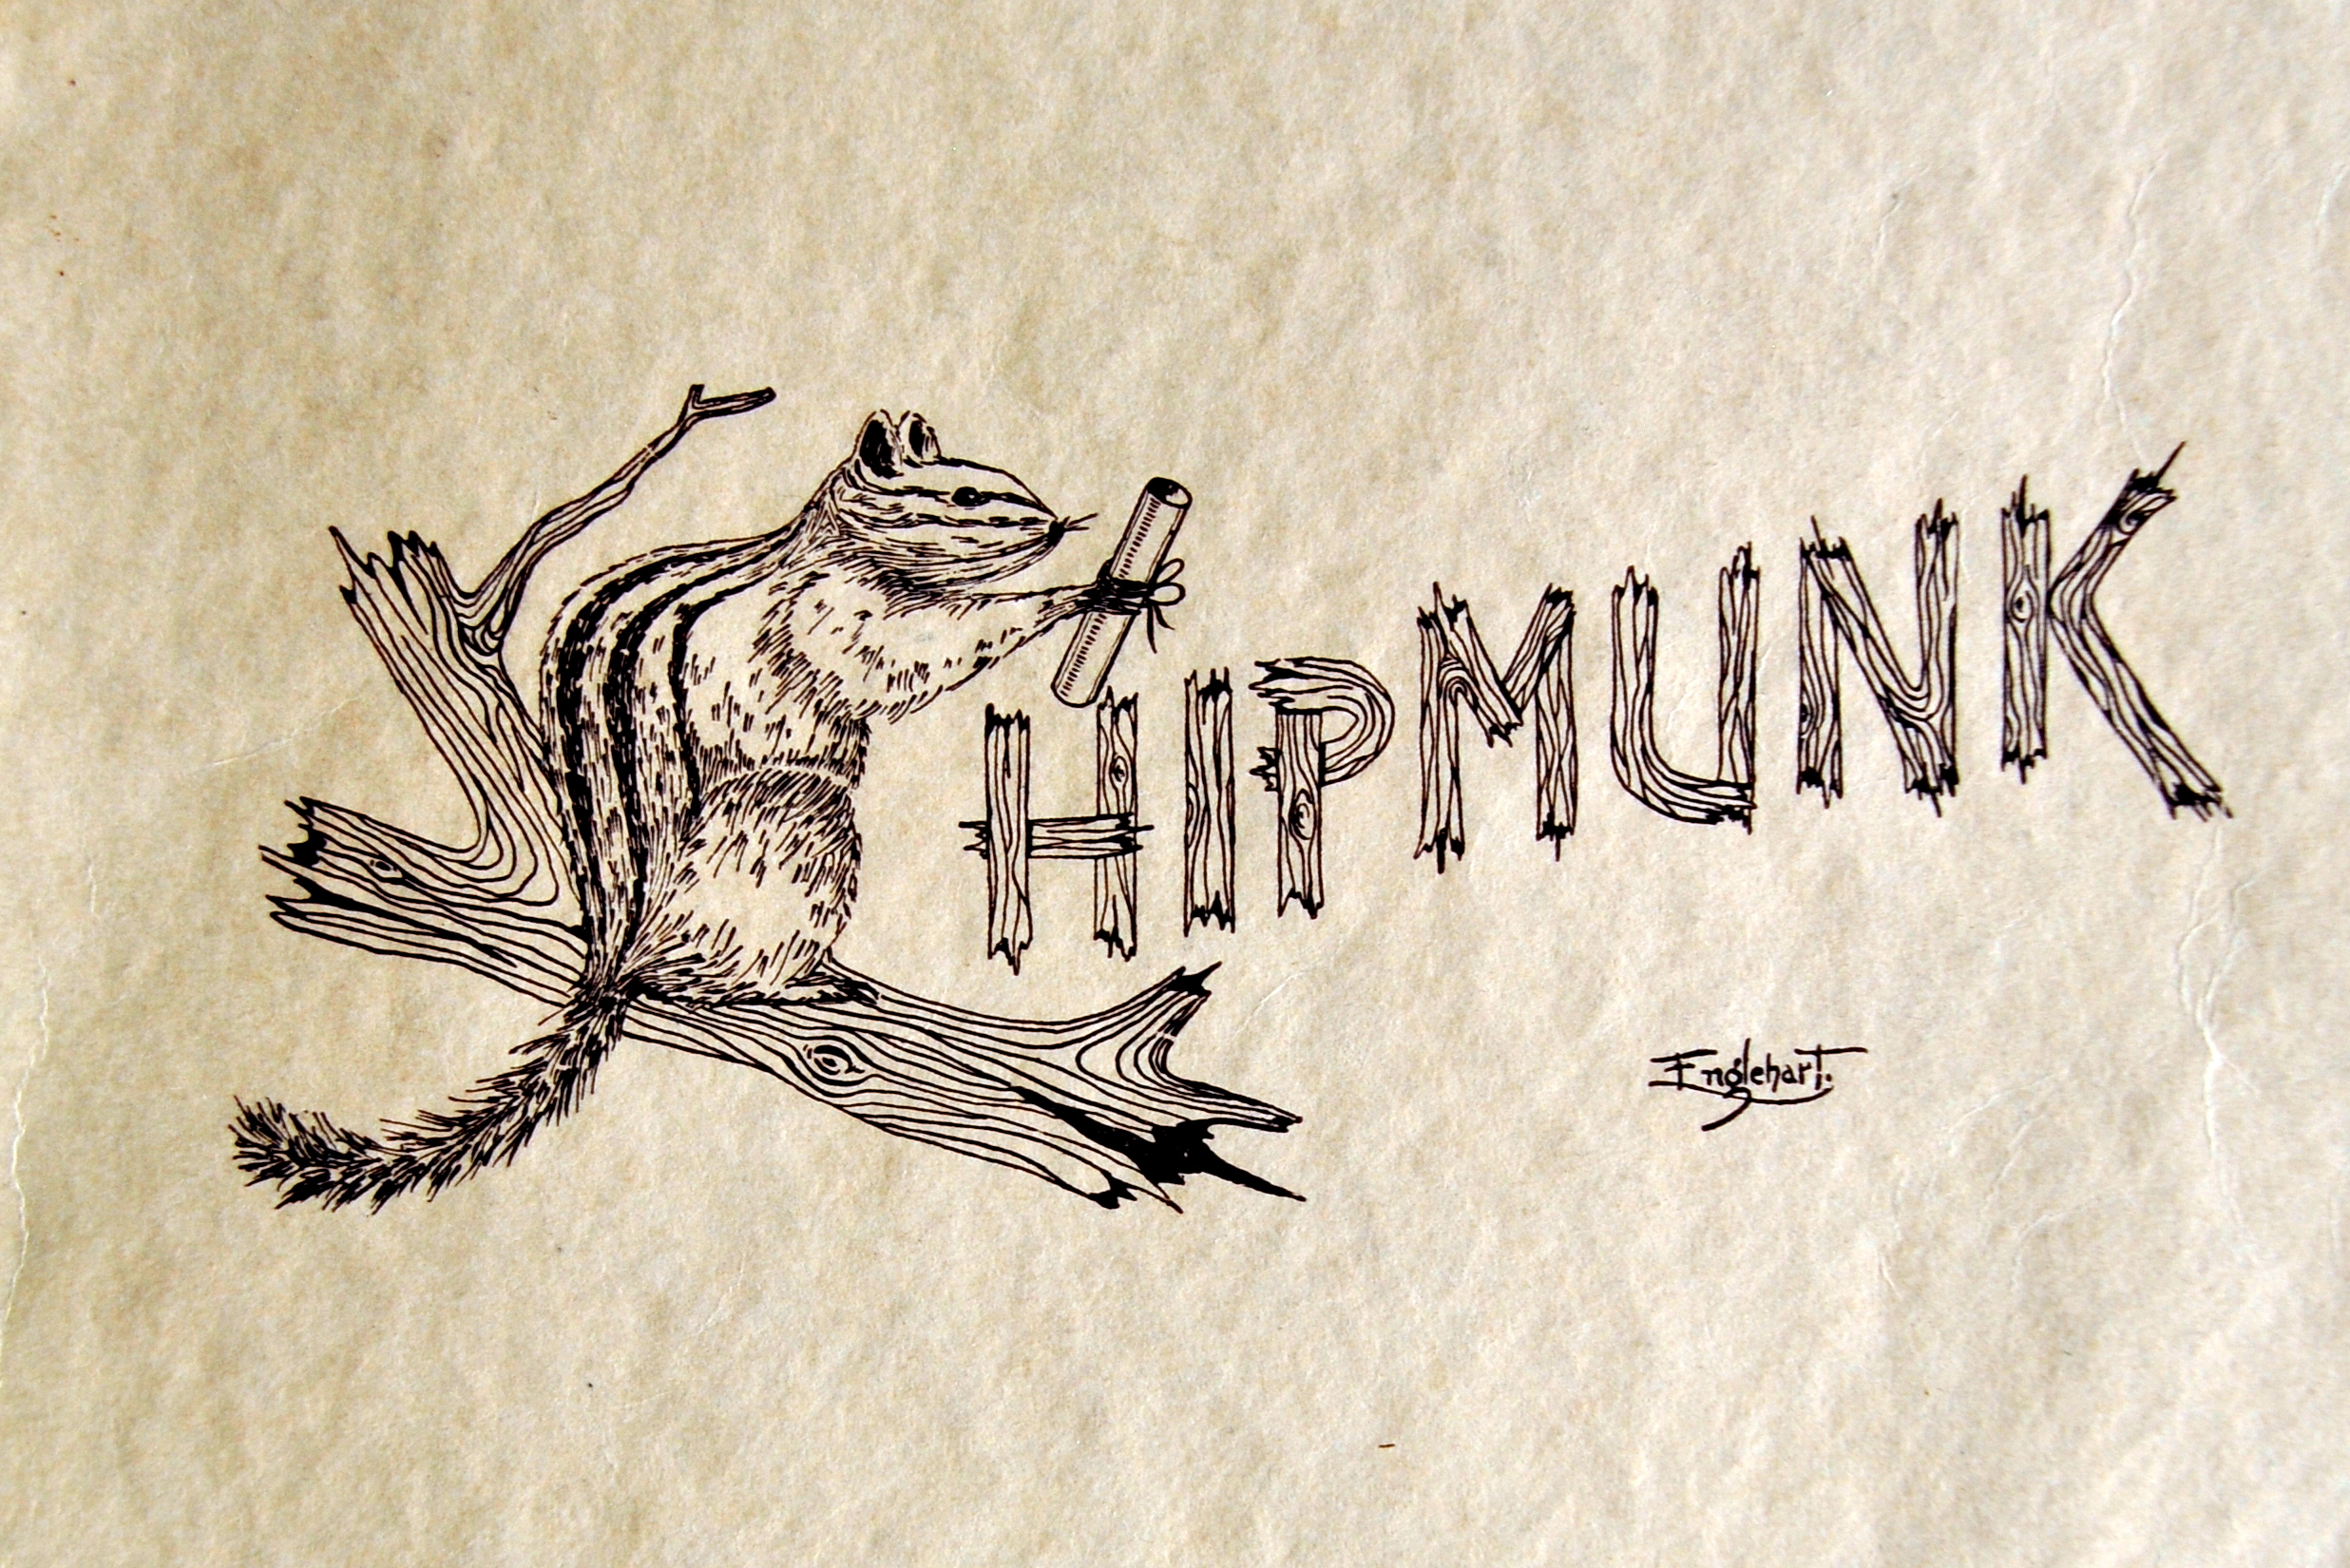 HIPMUNK
Englehart.